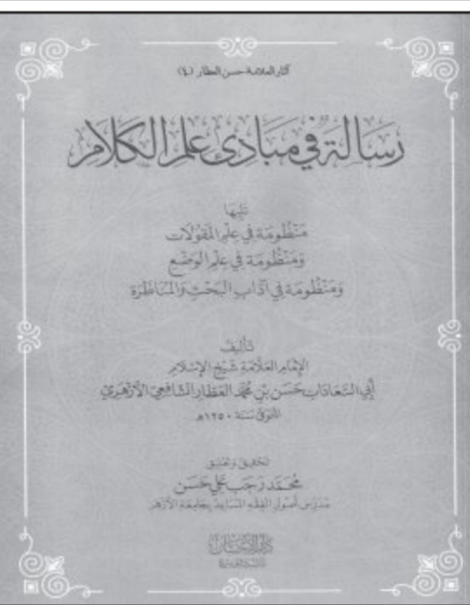 آثار العلامة حسن العطار (٤)
رسالة في مبادئ علم الكلام
تليها
منظومة في علم المقولات
ومنظومة في علم الوضع
ومنظومة في آداب البحث والمناظرة
تأليف
الإمام العلامة شيخ الإسلام
أبي السعادات حسن بن محمد العطار الشافعي الأزهري
المتوفى سنة ١٢٥٠هـ
تحقيق وتعليق
محمد رجب علي حسن
مدرس أصول الفقه المساعد بجامعة الأزهر
دار الإحسان